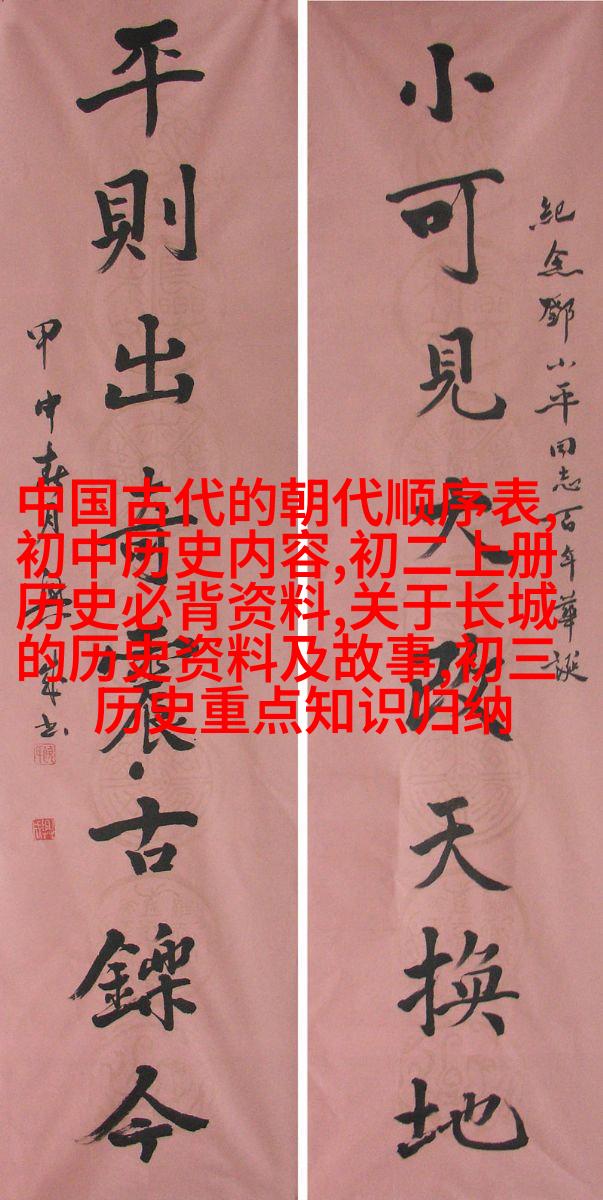 紀念鄧小平同志百年華誕
小可見大改天換地
平則出奇震古鑠今
甲申春月
中国古代的朝代顺序表,
初中历史内容,初二上册
历史必背资料,关于长城
的历史资料及故事,初三
历史重点知识归纳